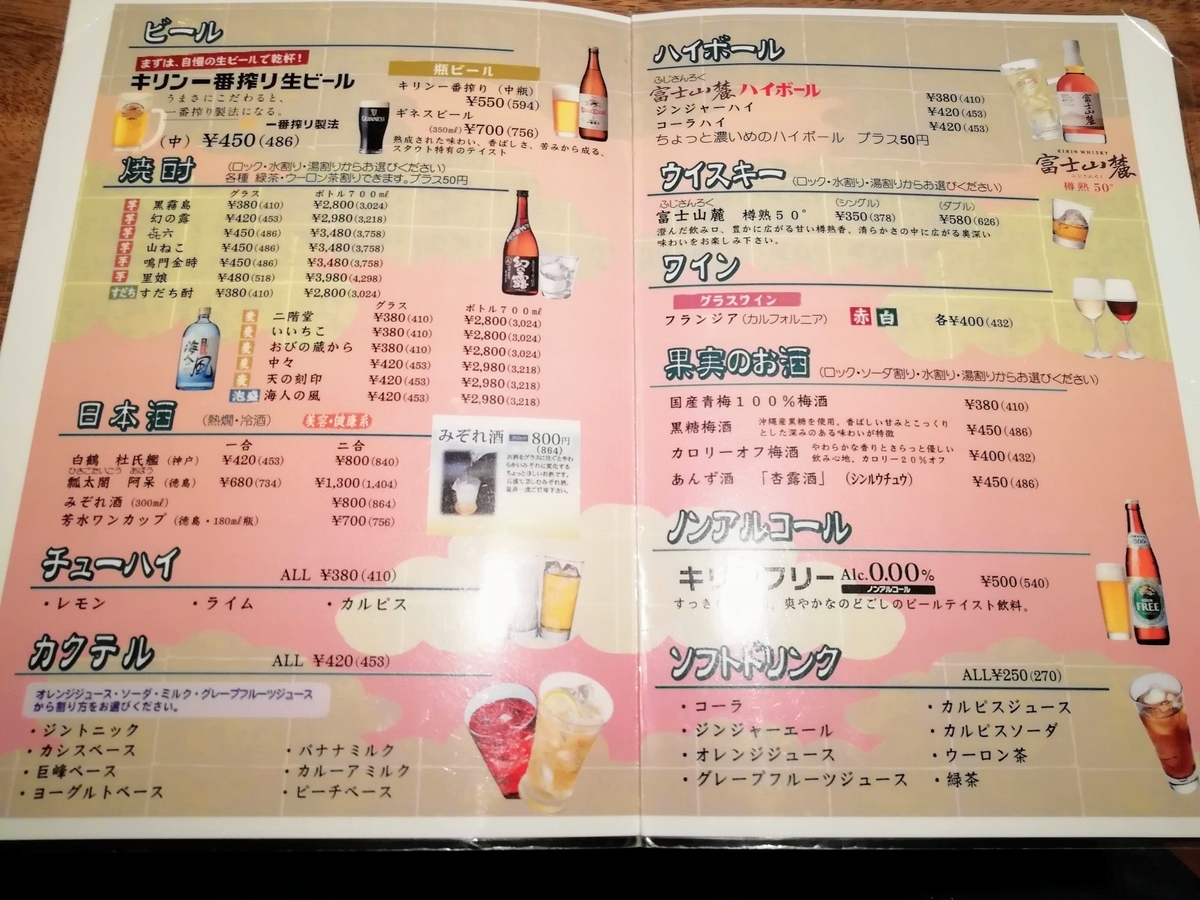 ビール
まずは、自慢の生ビールで乾杯!
キリン一番搾り生ビール
うまさにこだわると、
一番搾り製法になる。
一番搾り製法
(中) ¥450(486)
瓶ビール
キリン一番搾り (中瓶)
¥550(594)
ギネスビール
(350㎖)¥700(756)
熟成された味わい、香ばしさ、苦みから成る、
スタウト特有のテイスト
GUINNESS
焼酎 (ロック・水割り・湯割りからお選びください)
各種 緑茶・ウーロン茶割りできます。プラス50円
グラス ボトル700㎖
芋 黒霧島 ¥380(410) ¥2,800(3,024)
芋 幻の露 ¥420(453) ¥2,980(3,218)
芋 㐂六 ¥450(486) ¥3,480(3,758)
芋 山ねこ ¥450(486) ¥3,480(3,758)
芋 鳴門金時 ¥450(486) ¥3,480(3,758)
芋 里娘 ¥480(518) ¥3,980(4,298)
すだち すだち酎 ¥380(410) ¥2,800(3,024)
幻の露
グラス ボトル700㎖
麦 二階堂 ¥380(410) ¥2,800(3,024)
麦 いいちこ ¥380(410) ¥2,800(3,024)
麦 おびの蔵から ¥380(410) ¥2,800(3,024)
麦 中々 ¥420(453) ¥2,980(3,218)
麦 天の刻印 ¥420(453) ¥2,980(3,218)
泡盛 海人の風 ¥420(453) ¥2,980(3,218)
海人の風
日本酒 (熱燗・冷酒) 美容・健康系
一合 二合
白鶴 杜氏鑑(神戸) ¥420(453) ¥800(840)
ひさごたいこう あほう
瓢太閤 阿呆(徳島) ¥680(734) ¥1,300(1,404)
みぞれ酒(300㎖) ¥800(864)
芳水ワンカップ(徳島・180㎖瓶) ¥700(756)
みぞれ酒 300㎖ 800円
(864)
チューハイ ALL ¥380(410)
・レモン ・ライム ・カルピス
カクテル ALL ¥420(453)
オレンジジュース・ソーダ・ミルク・グレープフルーツジュース
から割り方をお選びください。
・ジントニック
・カシスベース ・バナナミルク
・巨峰ベース ・カルーアミルク
・ヨーグルトベース ・ピーチベース
ハイボール
ふじさんろく
富士山麓ハイボール ¥380(410)
ジンジャーハイ ¥420(453)
コーラハイ ¥420(453)
ちょっと濃いめのハイボール プラス50円
富士山麓
KIRIN WHISKY
富士山麓
ふじさんろく
樽熟50°
ウイスキー (ロック・水割り・湯割りからお選びください)
ふじさんろく (シングル) (ダブル)
富士山麓 樽熟50° ¥350(378) ¥580(626)
澄んだ飲み口、豊かに広がる甘い樽熟香、清らかさの中に広がる奥深い
味わいをお楽しみ下さい。
ワイン
グラスワイン
フランジア(カルフォルニア) 赤 白 各¥400(432)
果実のお酒 (ロック・ソーダ割り・水割り・湯割りからお選びください)
国産青梅100%梅酒 ¥380(410)
黒糖梅酒 沖縄産黒糖を使用、香ばしい甘みとこっくり
とした深みのある味わいが特徴 ¥450(486)
カロリーオフ梅酒 やわらかな香りとさらっと優しい
飲み心地、カロリー20%オフ ¥400(432)
あんず酒 「杏露酒」(シンルウチュウ) ¥450(486)
ノンアルコール
キリンフリー Alc.0.00% ¥500(540)
ノンアルコール
すっき 爽やかなのどごしのビールテイスト飲料。
FREE
ソフトドリンク ALL¥250(270)
・コーラ ・カルピスジュース
・ジンジャーエール ・カルピスソーダ
・オレンジジュース ・ウーロン茶
・グレープフルーツジュース ・緑茶